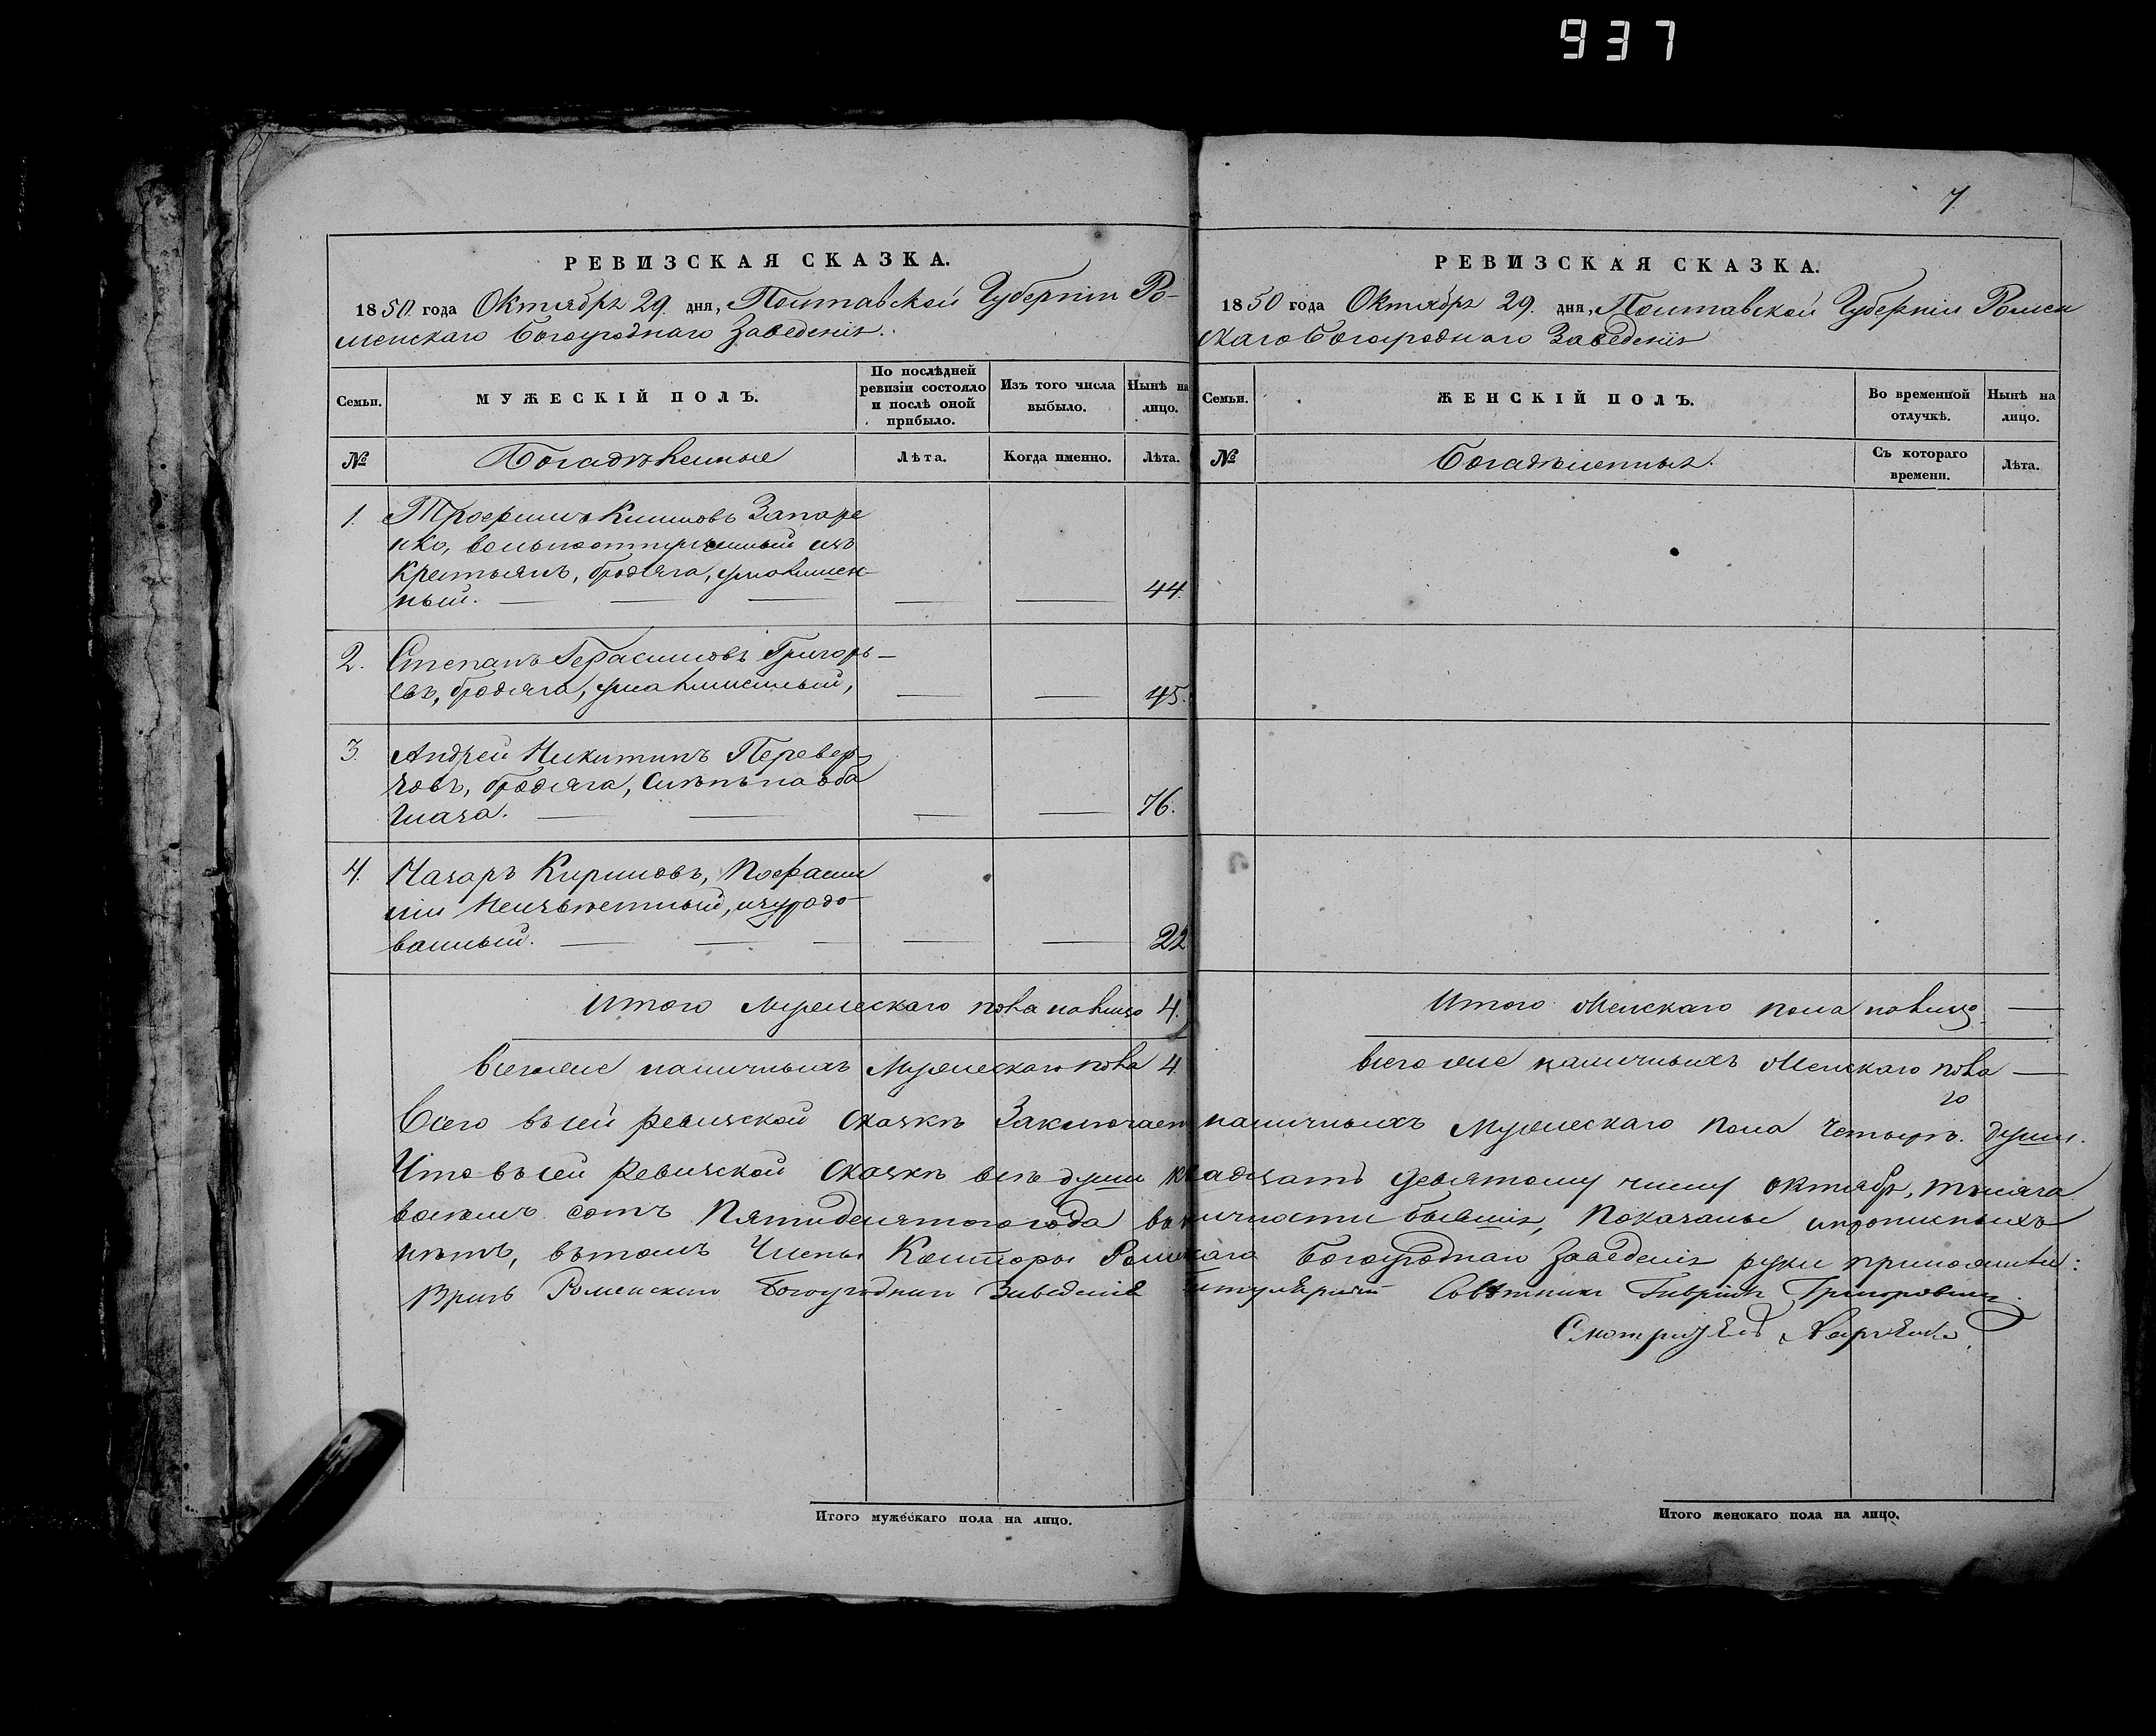 937
7
РЕВИЗСКАЯ СКАЗКА.
1850 года Октября 29. дня, Полтавской Губерніи Ро-
менскаго Богоугоднаго Заведенія.
Семьи.
МУЖЕСКІЙ ПОЛЪ.
По послѣдней ревизіи состояло и послѣ оной прибыло.
Изъ того числа выбыло.
Нынѣ на лицо.
№
Богадѣленные
Лѣта.
Когда именно.
Лѣта.
1. Трофимъ Климовъ Запаре
нко, вольноотпущенный изъ
крестьянъ, бродяга, умолишен-
ный. 44.
2. Степанъ Герасимовъ Григорь-
евъ, бродяга, умалишенный, 45.
3. Андрей Никитинъ Перевер
зовъ, бродяга, слѣпъ на оба
глаза. 76.
4. Назаръ Кириловъ, по фами
ліи Неизвѣстный, изуродо-
ванный. 22
Итого Мужескаго пола налицо 4.
Всего же наличныхъ Мужескаго пола 4
РЕВИЗСКАЯ СКАЗКА.
1850 года Октября 29. дня, Полтавской Губерніи Ромен
скаго Богоугоднаго Заведенія
Семьи.
ЖЕНСКІЙ ПОЛЪ.
Во временной отлучкѣ.
Нынѣ на лицо.
№
Богадѣленныя.
Съ котораго времени.
Лѣта.
Итого Женскаго пола налицо —
Всего же наличныхъ Женскаго пола —
Всего въ сей ревизской сказкѣ Заключает наличныхъ Мужескаго пола четыре души.
Что въ сей Ревизской Сказкѣ всѣ души къ двадцать девятому числу октября, тысяча
восемь сотъ Пятидесятого года в наличности бывшія, Показаны и прописныхъ
нѣтъ, въ томъ Члены Конторы Роменскаго Богоугоднаго Заведенія руки приложили:
Врачъ Роменскаго Богоугоднаго Заведенія Титулярный Совѣтникъ Гавріилъ Григоровичъ.
Смотритель
Итого мужескаго пола на лицо.
Итого женскаго пола на лицо.